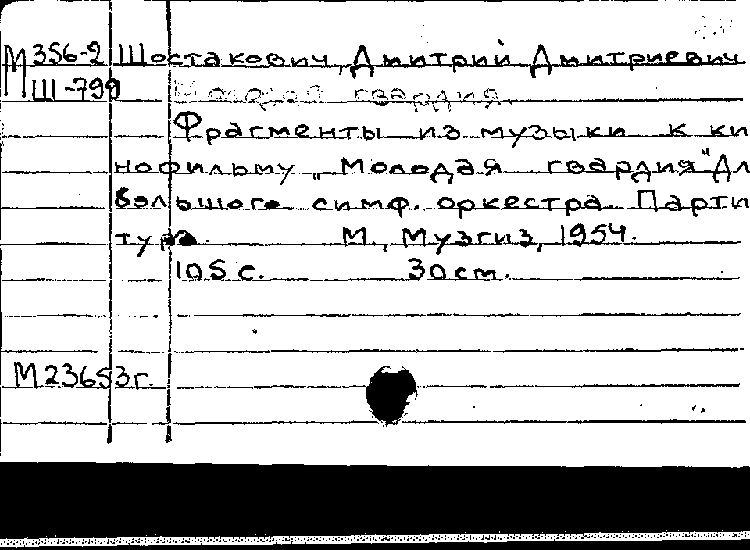 М 356-2 Шостакович, Дмитрий Дмитриевич
Ш-799 Молодая гвардия.
Фрагменты из музыки к ки
нофильму „Молодая гвардия" Дл
большого симф. оркестра. Парти
тура. М., Музгиз, 1954.
105 с. 30 см.
М23653г.